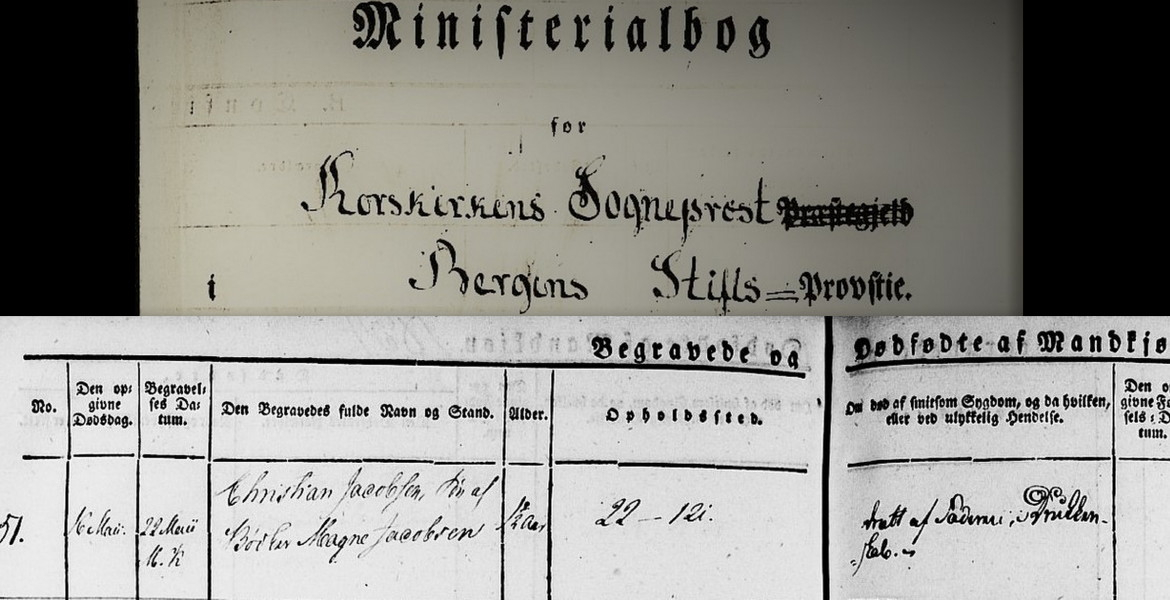 Ministerialbog
for
Korskirkens Sogneprest Præstegjeld
i Bergens Stifts=Provstie.
Begravede og Dødfødte af Mandkjø
No.
Den op-
givne
Dødsdag.
Begravel-
ses Da-
tum.
Den Begravedes fulde Navn og Stand.
Alder.
Opholdssted.
Om død af smitsom Sygdom, og da hvilken,
eller ved ulykkelig Hendelse.
Den o
givne Fø
sels-D
tum.
51.
16 Maii.
22 Maii
Christian Jacobsen, Søn af
Bødker Magne Jacobsen
22 — 12